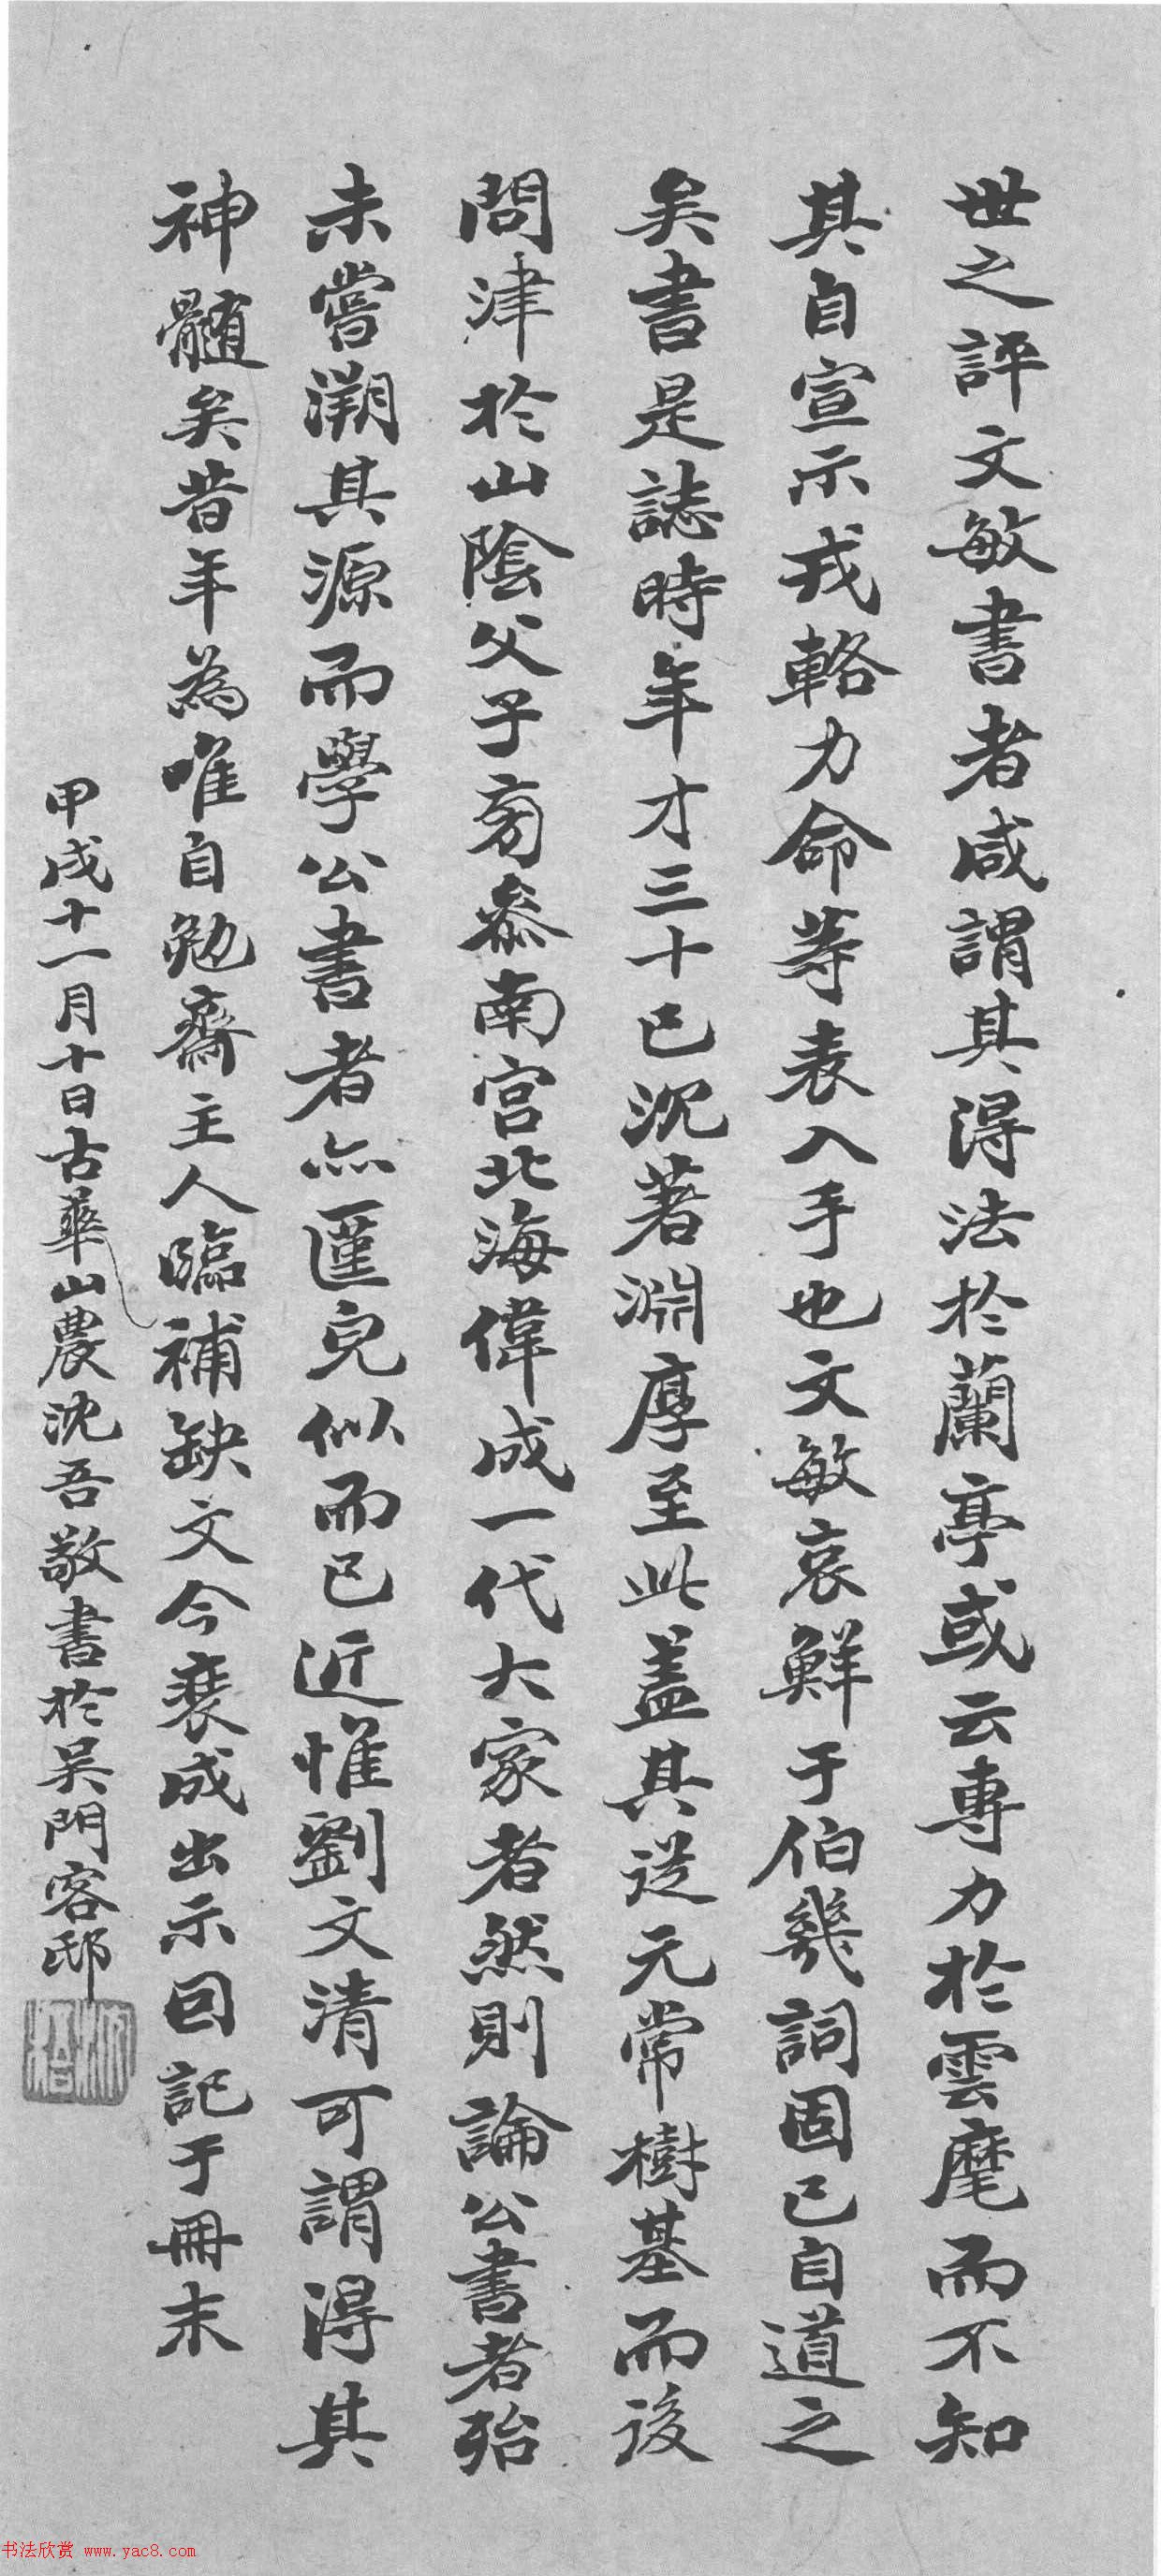 世之評文敏書者咸謂其得法於蘭亭或云專力於雲麾而不知
其自宣示戎輅力命等表入手也文敏哀鮮于伯幾詞固已自道之
矣書是誌時年才三十已沉著淵厚至此蓋其從元常樹基而後
問津於山陰父子旁叅南宮北海偉成一代大家者然則論公書者殆
未嘗溯其源而學公書者亦匪皃似而已近惟劉文清可謂得其
神髓矣昔年為唯自勉齋主人臨補缺文今裝成出示回記于冊末
甲戌十一月十日古華山農沈吾敬書於吳門客邸
书法欣赏 www.yac8.com